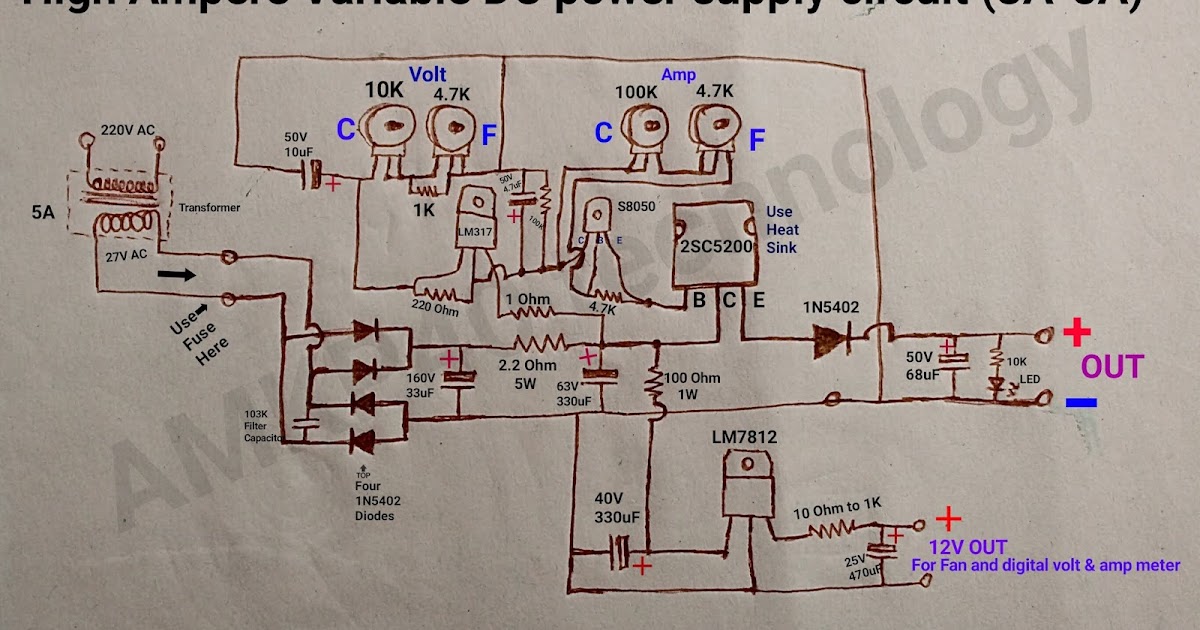 High Ampere variable DC power supply circuit (3A-5A)
Volt
Amp
10K
4.7K
100K
4.7K
C
F
C
F
220V AC
50V
10uF
+
5A
Transformer
27V AC
1K
LM317
50V
4.7uF
+
100K
S8050
C B E
2SC5200
Use
Heat
Sink
Use
Fuse
Here
220 Ohm
1 Ohm
4.7K
B C E
1N5402
+
2.2 Ohm
5W
+
160V
33uF
63V
330uF
100 Ohm
1W
50V
68uF
+
10K
LED
+
OUT
-
103K
Filter
Capacitor
TOP
Four
1N5402
Diodes
LM7812
40V
330uF
+
10 Ohm to 1K
+
+
25V
470uF
12V OUT
For Fan and digital volt & amp meter
Technology